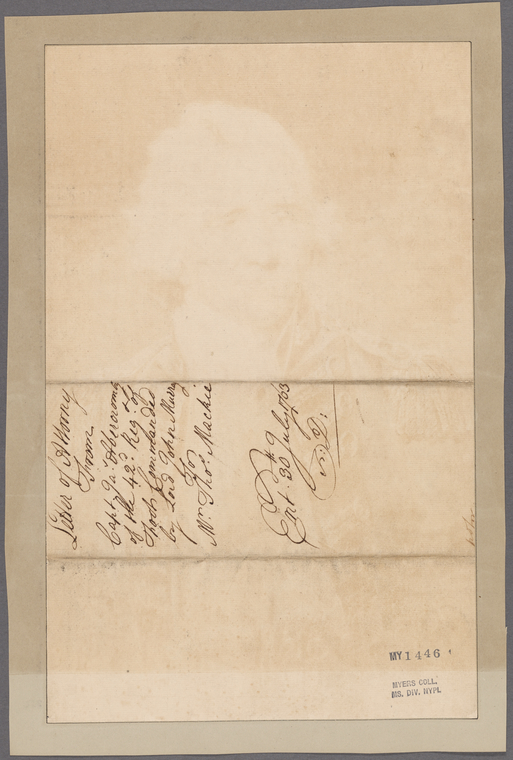 Letter of Attorny
From
Capt. Ja.s Abercromb
of the 42.d Reg.t of
Foot Commanded
by Lord John Murry
To
Mr. Tho.s Mackie
Ent. 30 July 1763
MY 1446
MYERS COLL.
MS. DIV. NYPL.